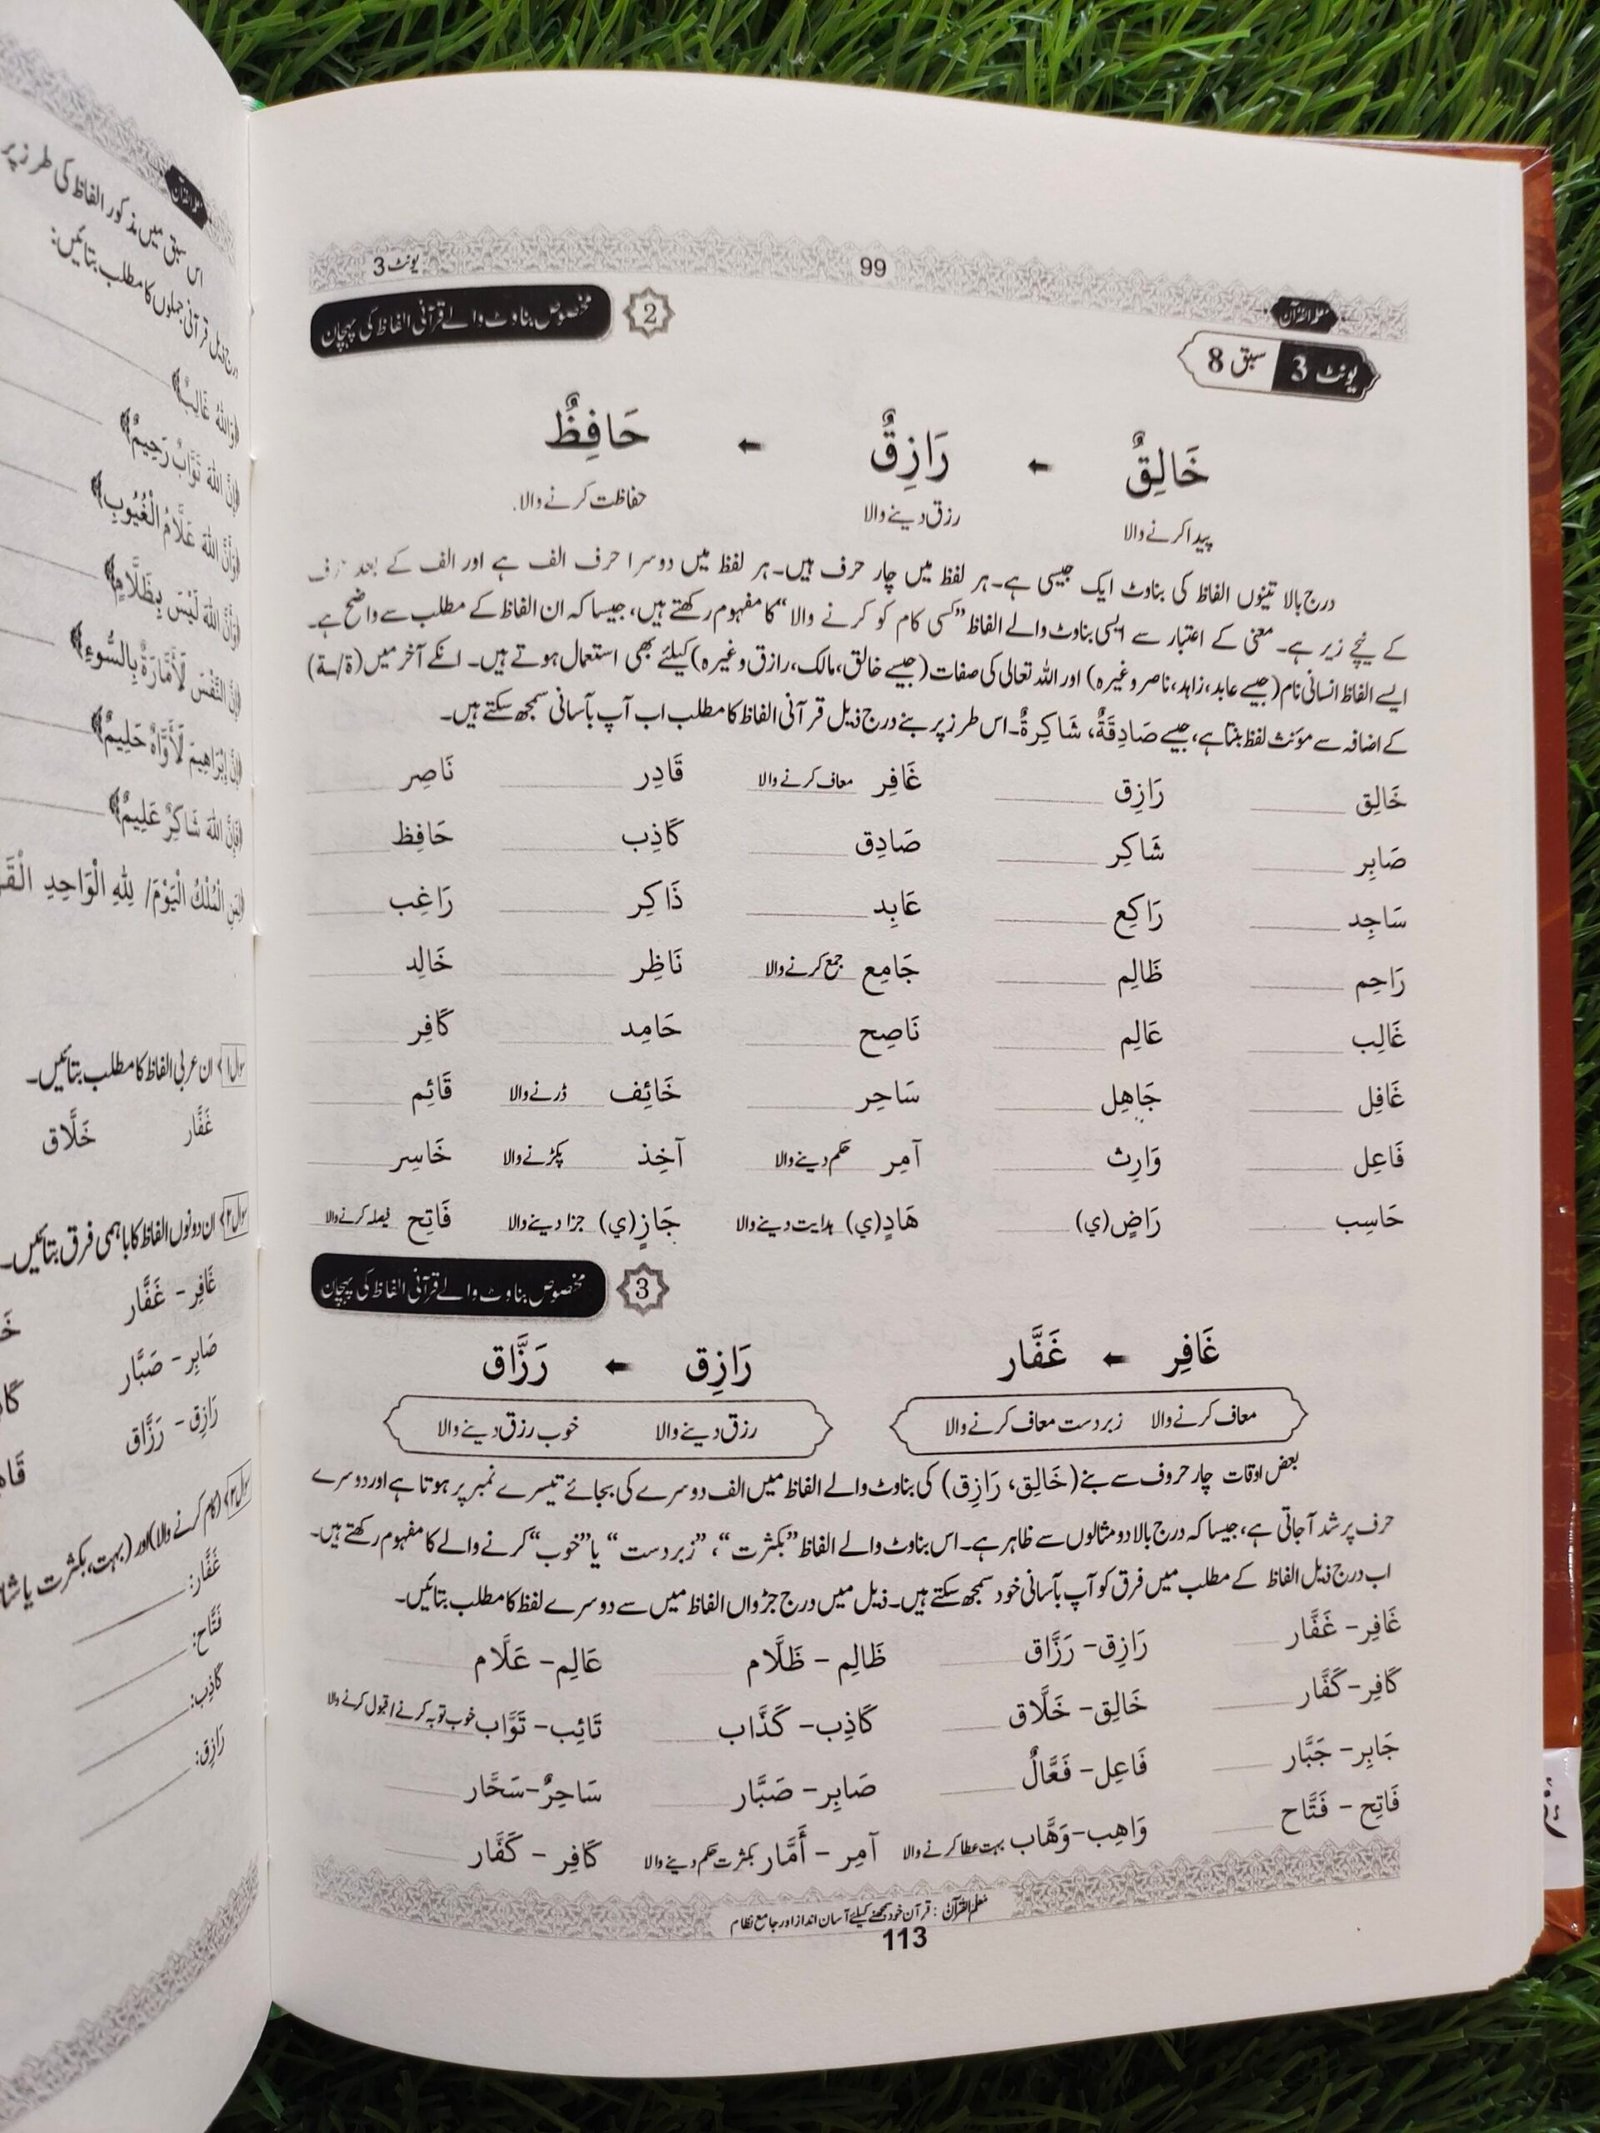 یونٹ 3
99
معلم القرآن
مخصوص بناوٹ والے قرآنی الفاظ کی پہچان 2
یونٹ 3 سبق 8
خَالِقٌ ← رَازِقٌ ← حَافِظٌ
پیدا کرنے والا رزق دینے والا حفاظت کرنے والا.
درج بالا تینوں الفاظ کی بناوٹ ایک جیسی ہے۔ ہر لفظ میں چار حرف ہیں۔ ہر لفظ میں دوسرا حرف الف ہے اور الف کے بعد حرف
کے نیچے زیر ہے۔ معنی کے اعتبار سے ایسی بناوٹ والے الفاظ ”کسی کام کو کرنے والا“ کا مفہوم رکھتے ہیں، جیسا کہ ان الفاظ کے مطلب سے واضح ہے۔
ایسے الفاظ انسانی نام (جیسے عابد، زاہد، ناصر وغیرہ) اور اللہ تعالی کی صفات (جیسے خالق، مالک، رازق وغیرہ) کیلئے بھی استعمال ہوتے ہیں۔ انکے آخر میں (ة/ـة)
کے اضافہ سے مؤنث لفظ بنتا ہے، جیسے صَادِقَةٌ، شَاكِرَةٌ۔ اس طرز پر بنے درج ذیل قرآنی الفاظ کا مطلب اب آپ بآسانی سمجھ سکتے ہیں۔
خَالِق رَازِق غَافِر معاف کرنے والا قَادِر نَاصِر
صَابِر شَاكِر صَادِق كَاذِب حَافِظ
سَاجِد رَاكِع عَابِد ذَاكِر رَاغِب
رَاحِم ظَالِم جَامِع جمع کرنے والا نَاظِر خَالِد
غَالِب عَالِم نَاصِح حَامِد كَافِر
غَافِل جَاهِل سَاحِر خَائِف ڈرنے والا قَائِم
فَاعِل وَارِث آمِر حکم دینے والا آخِذ پکڑنے والا خَاسِر
حَاسِب رَاضٍ (ي) هَادٍ (ي) ہدایت دینے والا جَازٍ (ي) جزا دینے والا فَاتِح فیصلہ کرنے والا
مخصوص بناوٹ والے قرآنی الفاظ کی پہچان 3
غَافِر ← غَفَّار رَازِق ← رَزَّاق
معاف کرنے والا زبردست معاف کرنے والا رزق دینے والا خوب رزق دینے والا
بعض اوقات چار حروف سے بنے (خَالِق، رَازِق) کی بناوٹ والے الفاظ میں الف دوسرے کی بجائے تیسرے نمبر پر ہوتا ہے اور دوسرے
حرف پر شد آجاتی ہے، جیسا کہ درج بالا دو مثالوں سے ظاہر ہے۔ اس بناوٹ والے الفاظ ”بکثرت“، ”زبردست“ یا ”خوب“ کرنے والے کا مفہوم رکھتے ہیں۔
اب درج ذیل الفاظ کے مطلب میں فرق کو آپ بآسانی خود سمجھ سکتے ہیں۔ ذیل میں درج جڑواں الفاظ میں سے دوسرے لفظ کا مطلب بتائیں۔
غَافِر – غَفَّار رَازِق – رَزَّاق ظَالِم – ظَلَّام عَالِم – عَلَّام
كَافِر – كَفَّار خَالِق – خَلَّاق كَاذِب – كَذَّاب تَائِب – تَوَّاب خوب توبہ کرنے/قبول کرنے والا
جَابِر – جَبَّار فَاعِل – فَعَّالٌ صَابِر – صَبَّار سَاحِرٌ – سَحَّار
فَاتِح – فَتَّاح وَاهِب – وَهَّاب بہت عطا کرنے والا آمِر – أَمَّار بکثرت حکم دینے والا كَافِر – كَفَّار
معلم القرآن: قرآن خود سمجھنے کیلئے آسان انداز اور جامع نظام
113
معلم القرآن
اس سبق میں مذکور الفاظ کی طرز پر
درج ذیل قرآنی جملوں کا مطلب بتائیں:
﴿وَاللهُ غَالِبٌ﴾
﴿إِنَّ اللهَ تَوَّابٌ رَحِيمٌ﴾
﴿وَأَنَّ اللهَ عَلَّامُ الْغُيُوبِ﴾
﴿وَأَنَّ اللهَ لَيْسَ بِظَلَّامٍ﴾
﴿إِنَّ النَّفْسَ لَأَمَّارَةٌ بِالسُّوءِ﴾
﴿إِنَّ إِبْرَاهِيمَ لَأَوَّاهٌ حَلِيمٌ﴾
﴿فَإِنَّ اللهَ شَاكِرٌ عَلِيمٌ﴾
﴿لِمَنِ الْمُلْكُ الْيَوْمَ/ لِلّٰهِ الْوَاحِدِ
سوال ۱﴾ ان عربی الفاظ کا مطلب بتائیں۔
غَفَّار خَلَّاق
سوال ۲﴾ ان دونوں الفاظ کا باہمی فرق بتائیں۔
غَافِر – غَفَّار
صَابِر – صَبَّار
رَازِق – رَزَّاق
سوال ۳﴾ (کام کرنے والا) اور (بہت، بکثرت یا
غَفَّار:
فَتَّاح:
كَاذِب:
رَازِق: